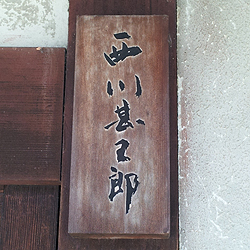 西川甚五郎